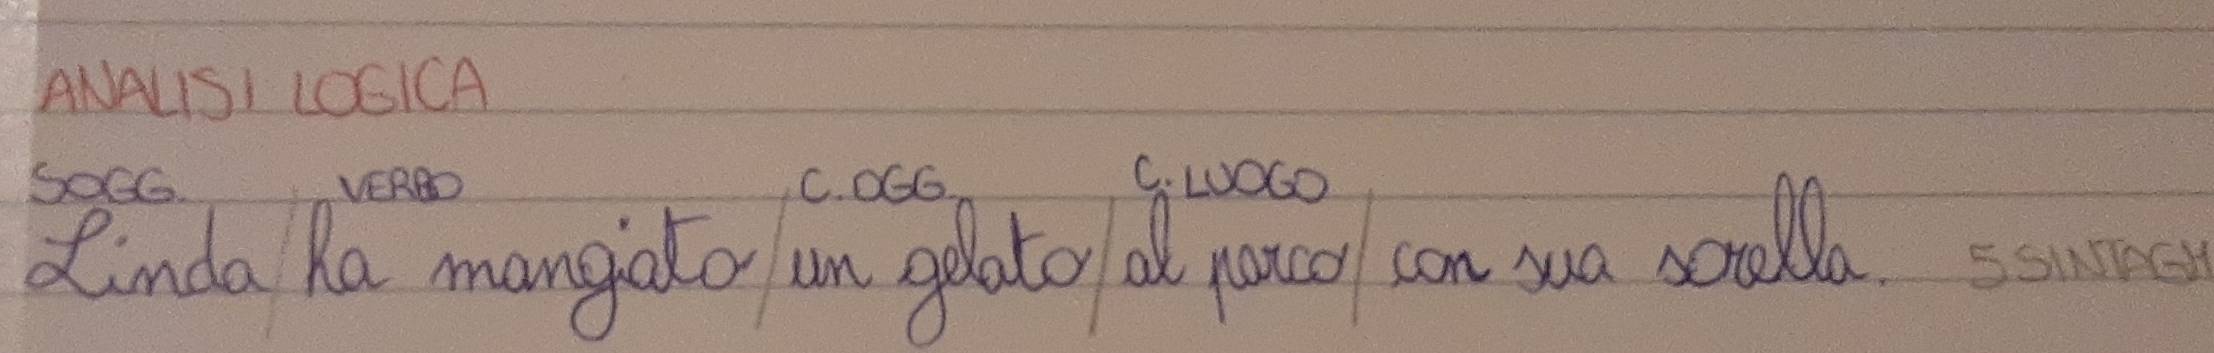 ANALISI LOGICA
SOGG. VERBO C. OGG. C. LUOGO
Linda / ha mangiato / un gelato / al parco / con sua sorella. 5 SINTAGM